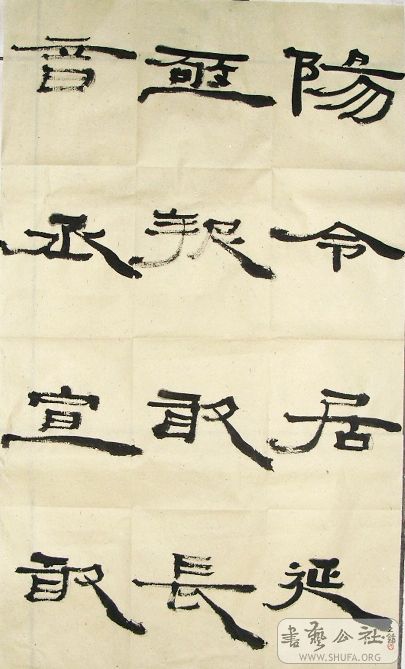 陽令居延
報敢長
音丞宣敢
書藝公社
WWW.SHUFA.ORG